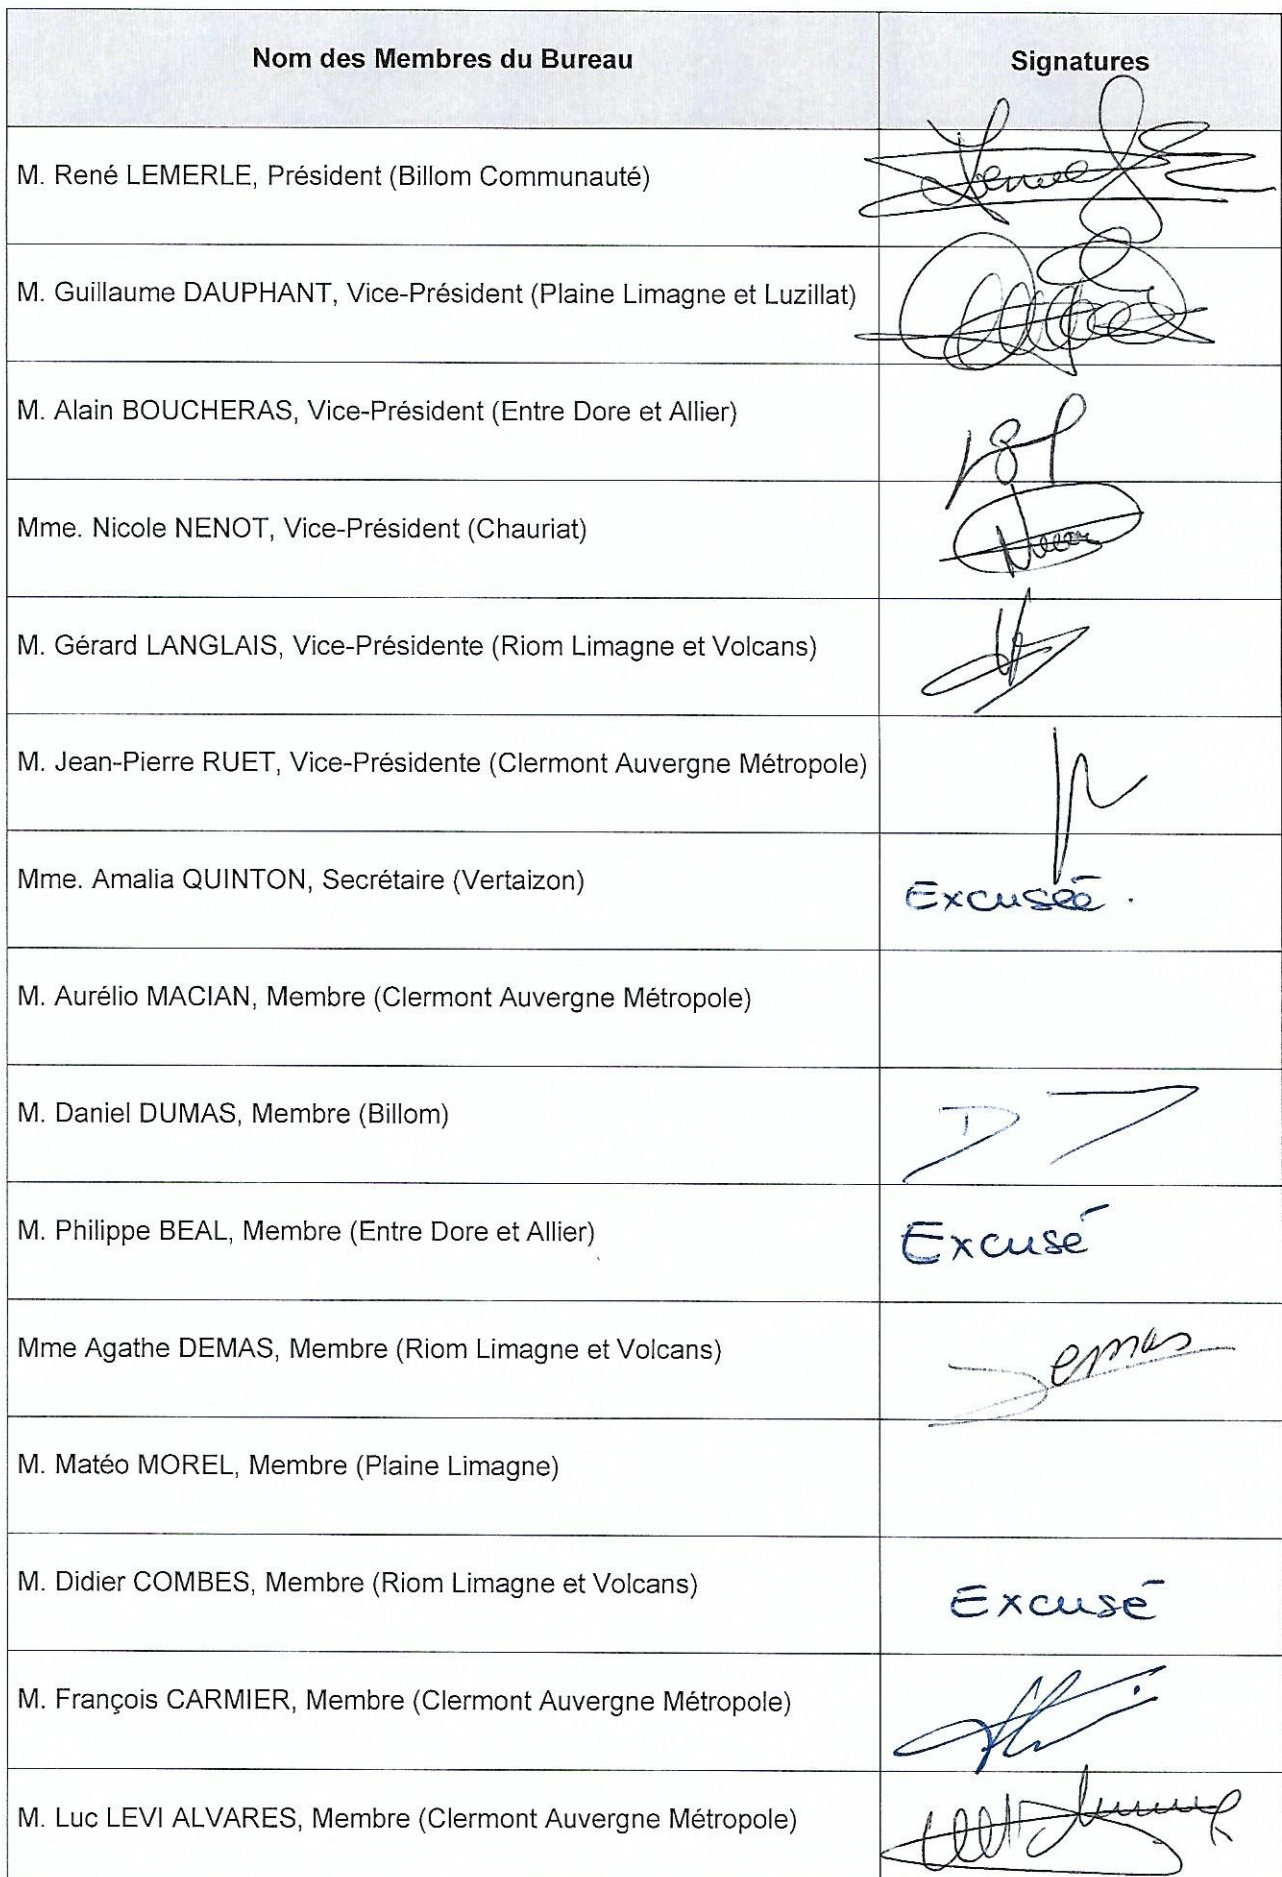 Nom des Membres du Bureau
Signatures
M. René LEMERLE, Président (Billom Communauté)
M. Guillaume DAUPHANT, Vice-Président (Plaine Limagne et Luzillat)
M. Alain BOUCHERAS, Vice-Président (Entre Dore et Allier)
Mme. Nicole NENOT, Vice-Président (Chauriat)
M. Gérard LANGLAIS, Vice-Présidente (Riom Limagne et Volcans)
M. Jean-Pierre RUET, Vice-Présidente (Clermont Auvergne Métropole)
Mme. Amalia QUINTON, Secrétaire (Vertaizon)
Excusée.
M. Aurélio MACIAN, Membre (Clermont Auvergne Métropole)
M. Daniel DUMAS, Membre (Billom)
M. Philippe BEAL, Membre (Entre Dore et Allier)
Excusé
Mme Agathe DEMAS, Membre (Riom Limagne et Volcans)
Demas
M. Matéo MOREL, Membre (Plaine Limagne)
M. Didier COMBES, Membre (Riom Limagne et Volcans)
Excusé
M. François CARMIER, Membre (Clermont Auvergne Métropole)
M. Luc LEVI ALVARES, Membre (Clermont Auvergne Métropole)